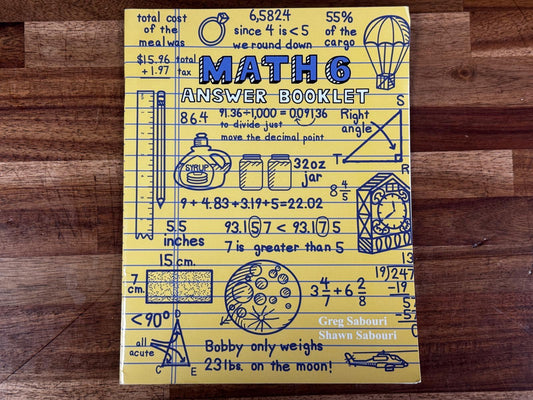 total cost
of the
meal was
6,5824
since 4 is <5
we round down
55%
of the
cargo
$15.96 total
+ 1.97 tax
MATH 6
ANSWER BOOKLET
S
86.4
91.36÷1,000 = 0.09136
to divide just
move the decimal point
Right
angle
T
R
SYRUP
32oz
jar
8 4/5
9 + 4.83 + 3.19 + 5 = 22.02
5.5
inches
93.157 < 93.175
7 is greater than 5
15 cm.
7
cm.
3 4/7 + 6 2/8
13
19)247
-19
57
-5
<90°
all
acute
D
C
E
Greg Sabouri
Shawn Sabouri
Bobby only weighs
23 lbs. on the moon!